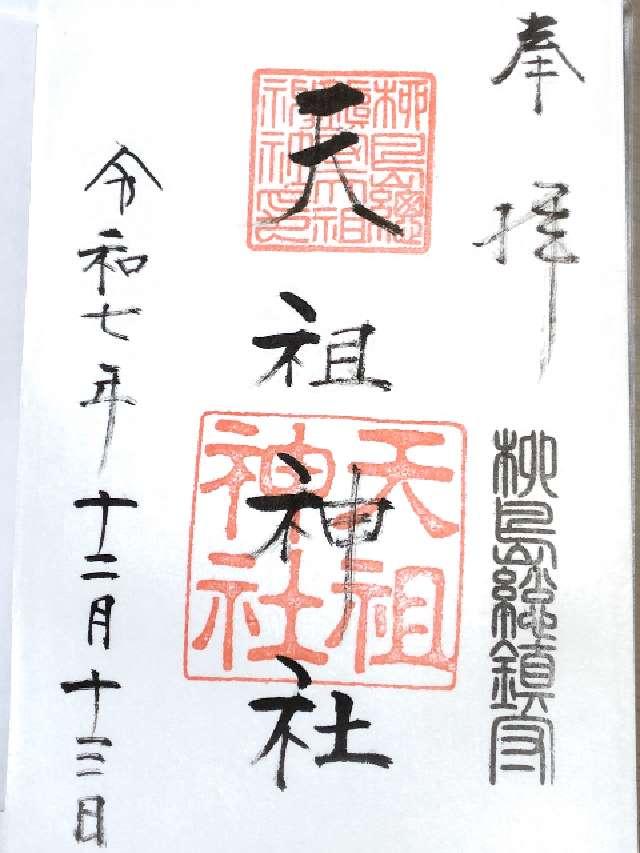 奉拝
柳島総鎮守
天祖神社
柳島總
鎮守天祖
神社印
天祖
神社
令和七年十二月十三日